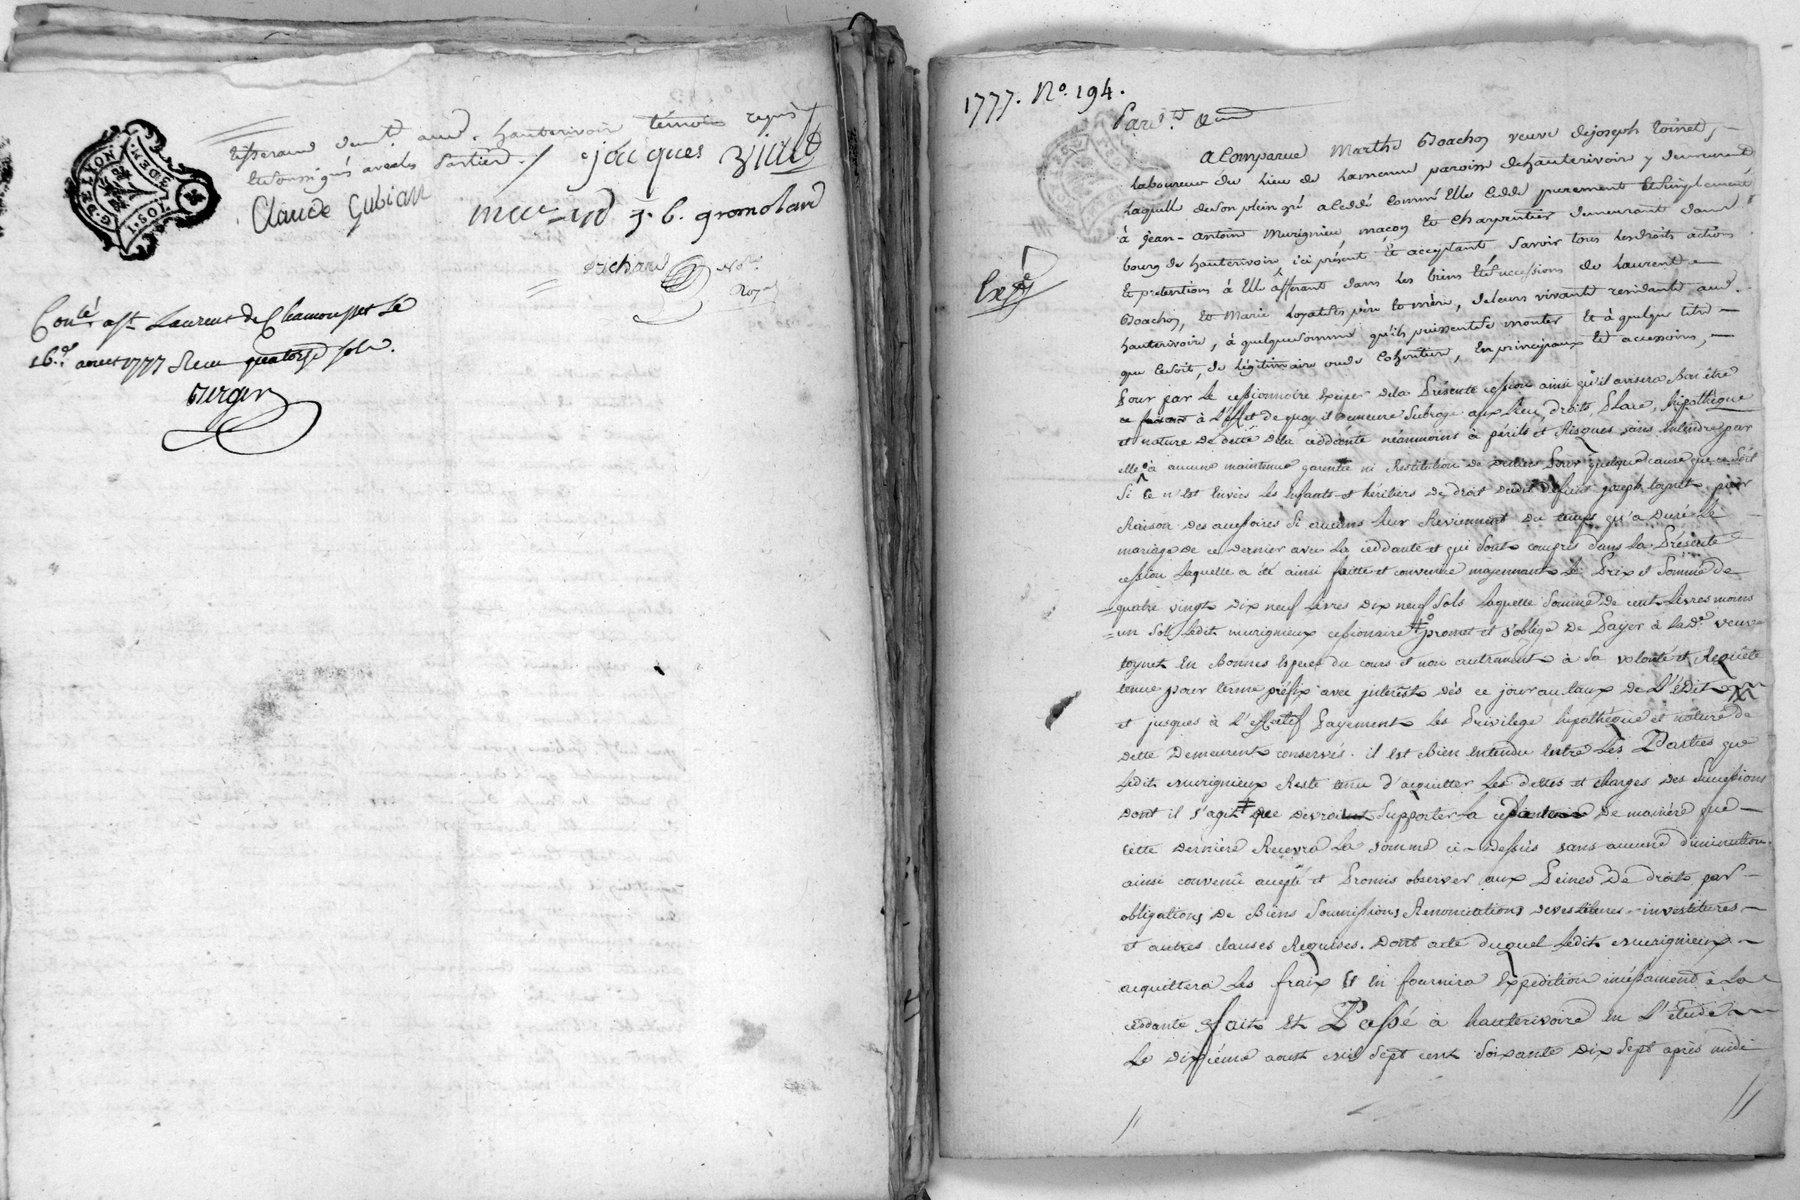 tisserand demt. aud. hauterivoir témoin requis
et soussignés avec les parties. /
jacques Viale
Claude Gubian
j. b. gromoland
Richard Nore.
Royal
G. DE LYON.
Conlé. à st. Laurent de Chamousset le
16.e aoust 1777 Reçu quatorze sols.
Verger
1777. No. 194.
Pard.t
a Comparue Marthe Goachon veuve de joseph toinet,
laboureur du lieu de lamenue paroisse de hauterivoir y demeurant
Laquelle de son plein gré a Ceddé comme Elle Cedde purement et simplement
à jean-antoine Murignieu maçon et Charpentier demeurant dans le
bourg de hauterivoir ici présent et acceptant savoir tous les droits actions
Et pretentions à Elle afferant dans les biens et successions de Laurent
Goachon, et Marie Loyal ses père et mère, de leurs vivants residants aud.
hauterivoire, à quelque somme qu'ils puissent se monter et à quelque titre
que ce soit, de légitimaire ou de Cohéritier, En principaux et accessoires,
Pour par le cessionnaire User de la Présente cession ainsi qu'il avisera Bon être
à l'effet de quoy il demeure Subrogé aux Lieu, droits, Place, hipothèque
et nature de dette de la ceddante néanmoins à périls et Risques sans entendre par
elle à aucune maintenue garentie ni Restitution de deniers Pour quelque cause que ce Soit
Si Ce n'est Envers Les Enfants et héritiers de droit dudit defunt joseph toynet pour
Raison des accessoires Si aucuns leur Reviennent du temps qu'a duré Le
mariage de ce dernier avec La ceddante et qui Sont compris dans La Présente
cession Laquelle a été ainsi faitte et convenue moyennant Le Prix et Somme de
quatre vingt dix neuf Livres dix neuf Sols Laquelle Somme de cent Livres moins
un Sol Ledit murignieux cessionaire promet et s'oblige de Payer à lad.e veuve
toynet En Bonnes Especes du cours et non autrement à Sa volonté et Requête
tenue pour terme préfix avec interest dès ce jour au taux de L'édit
et jusques à L'effectif Payement Les Privilege hipothéque et nature de
dette demeurent conservés. il est Bien entendu Entre Les Parties que
Ledit murignieux Reste tenu d'acquitter Les dettes et charges des Successions
dont il s'agit que devroit Supporter la ceddante de maniere que
cette derniere Recevra La somme ci-dessus sans aucune diminution
ainsi convenu accepté et Promis observer aux Peines de droit par
obligations de Biens Soumissions Renonciations devestitures investitures
et autres clauses Requises. Dont acte duquel Ledit murignieux
acquittera Les fraix et en fournira Expedition incessament à La
ceddante fait et Passé à hauterivoire En L'étude
Le dixiéme aoust mil Sept cent Soixante dix Sept après midi